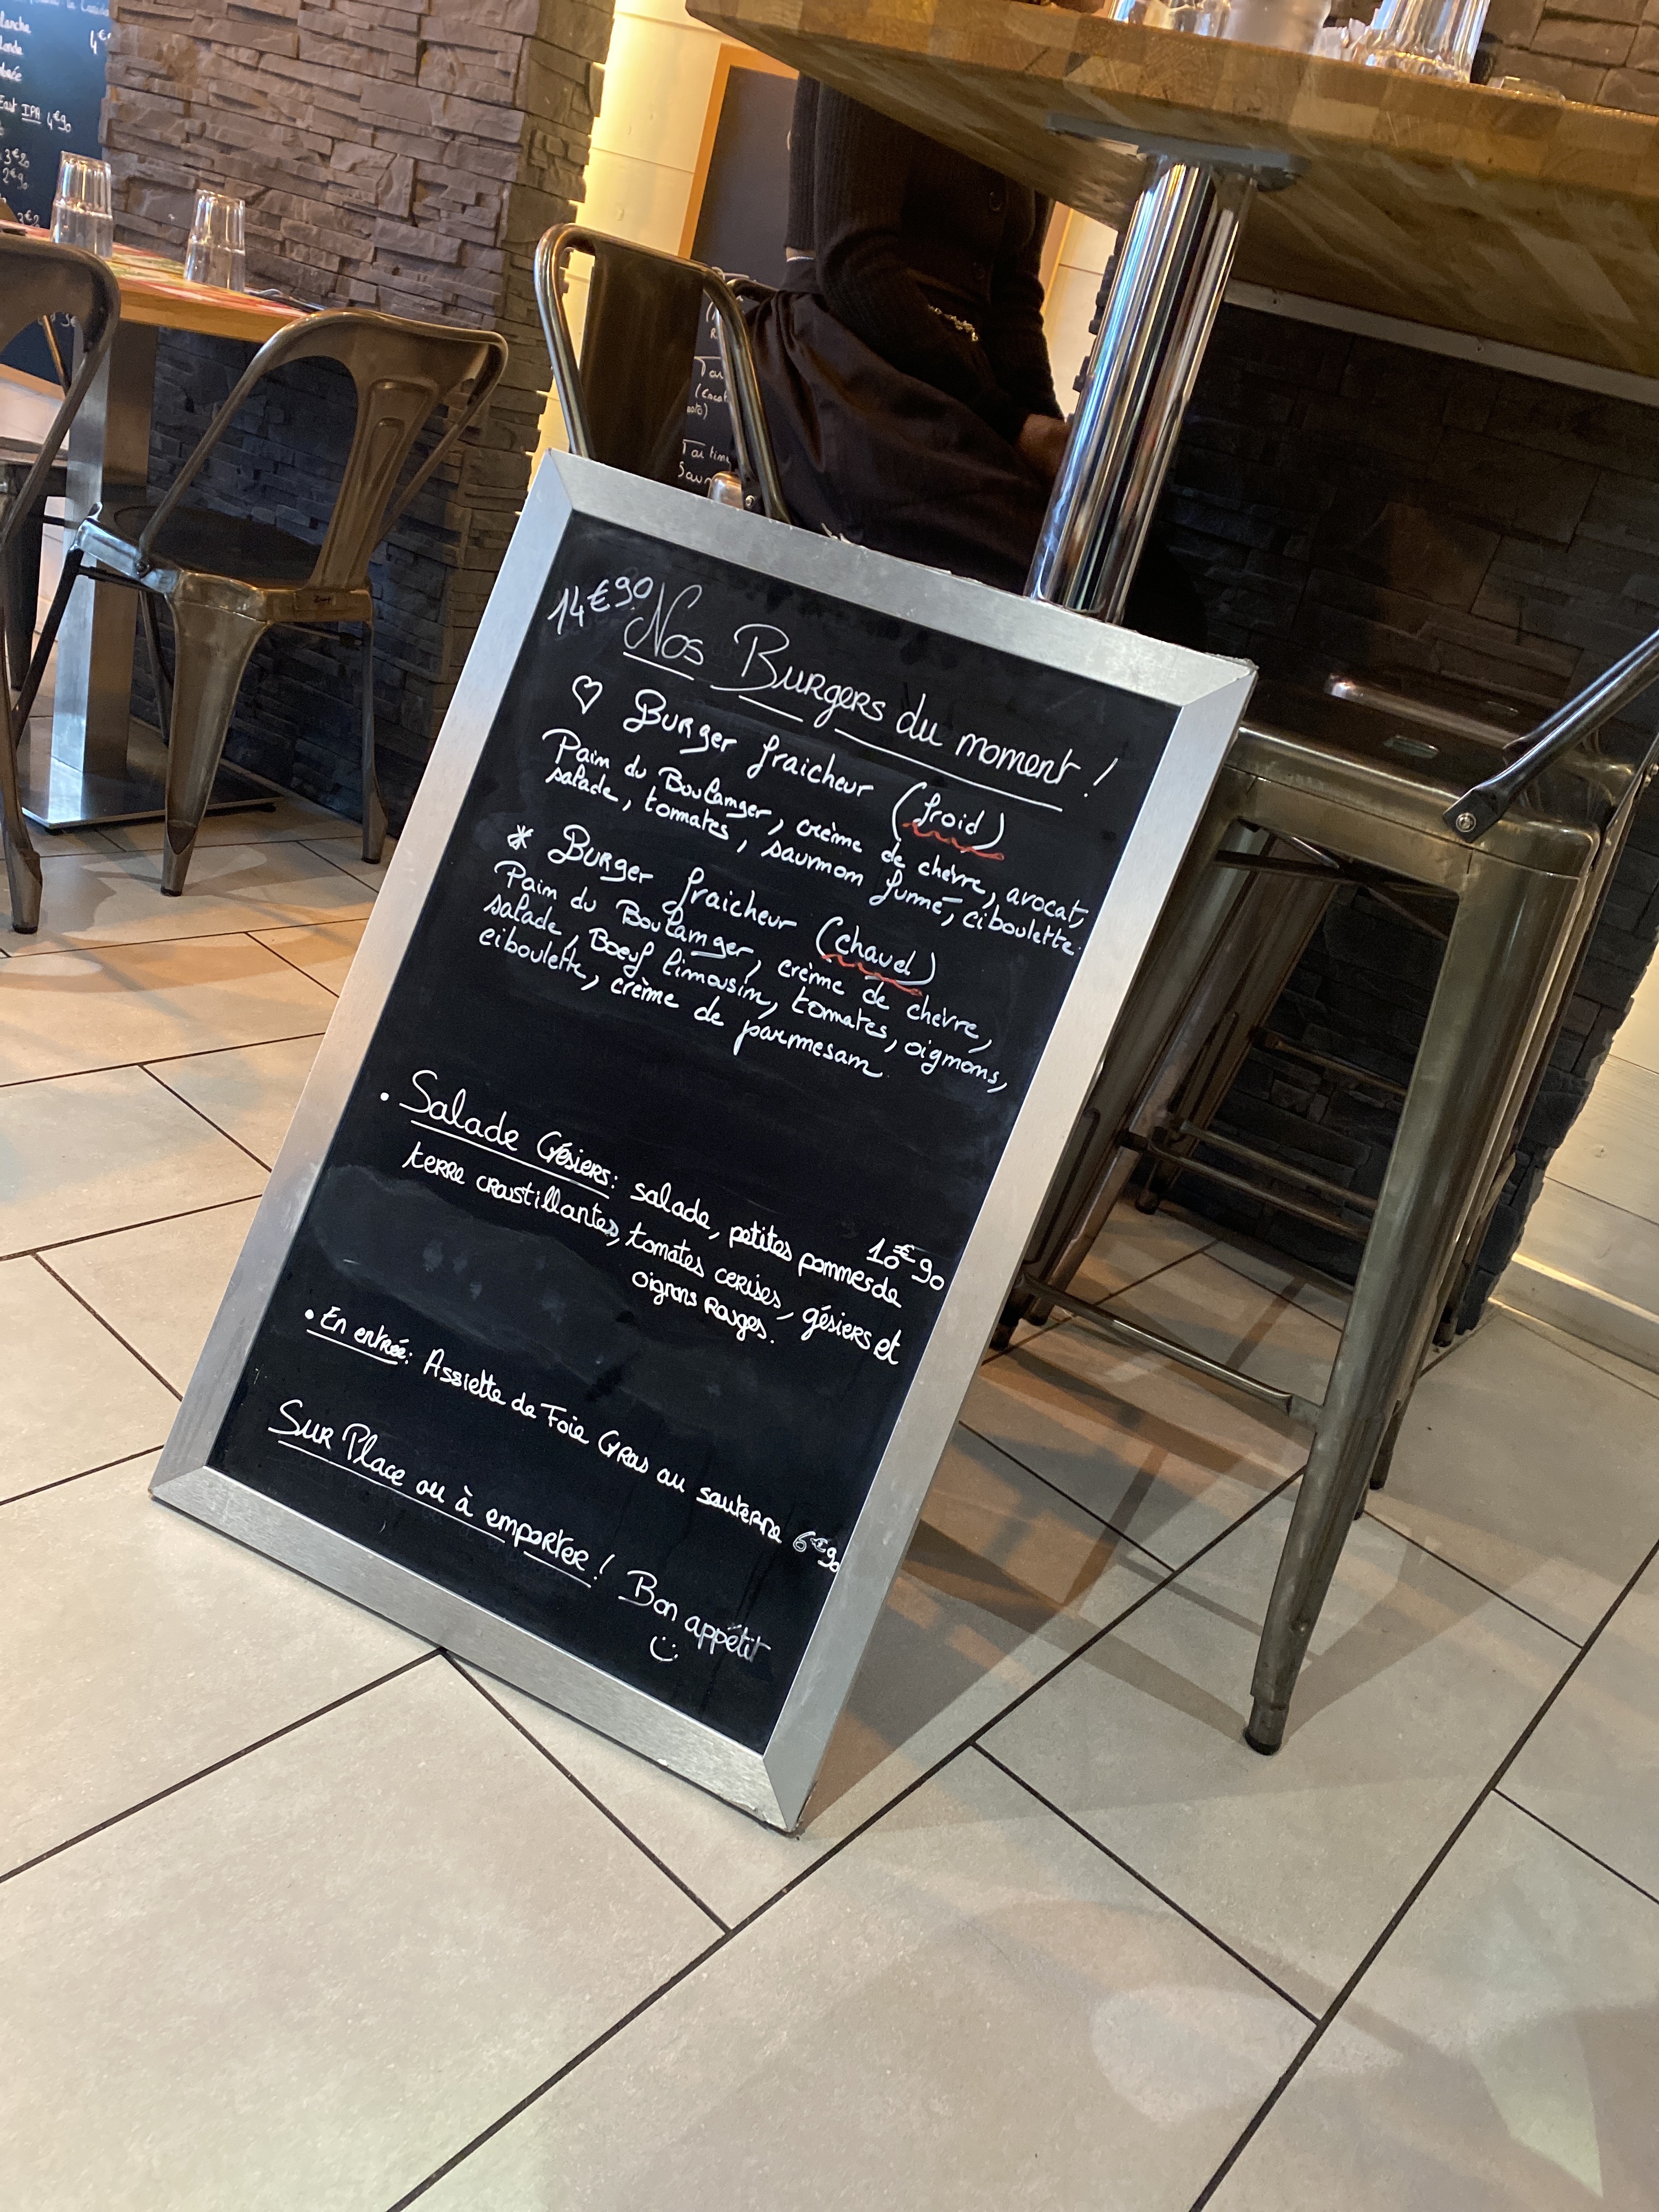 lanche
4€
East IPA 4€90
3€20
2€90
Tartine
14€90
Nos Burgers du moment !
♡ Burger fraicheur (froid)
Pain du Boulanger, crème de chèvre, avocat,
salade, tomates, saumon fumé, ciboulette.
* Burger fraicheur (chaud)
Pain du Boulanger, crème de chèvre,
salade, Bœuf limousin, tomates, oignons,
ciboulette, crème de parmesan.
10€90
• Salade Gésiers: salade, petites pommes de
terre croustillantes, tomates cerises, gésiers et
oignons Rouges.
• En entrée: Assiette de Foie Gras au sauterne 6€90
Sur Place ou à emporter ! Bon appétit